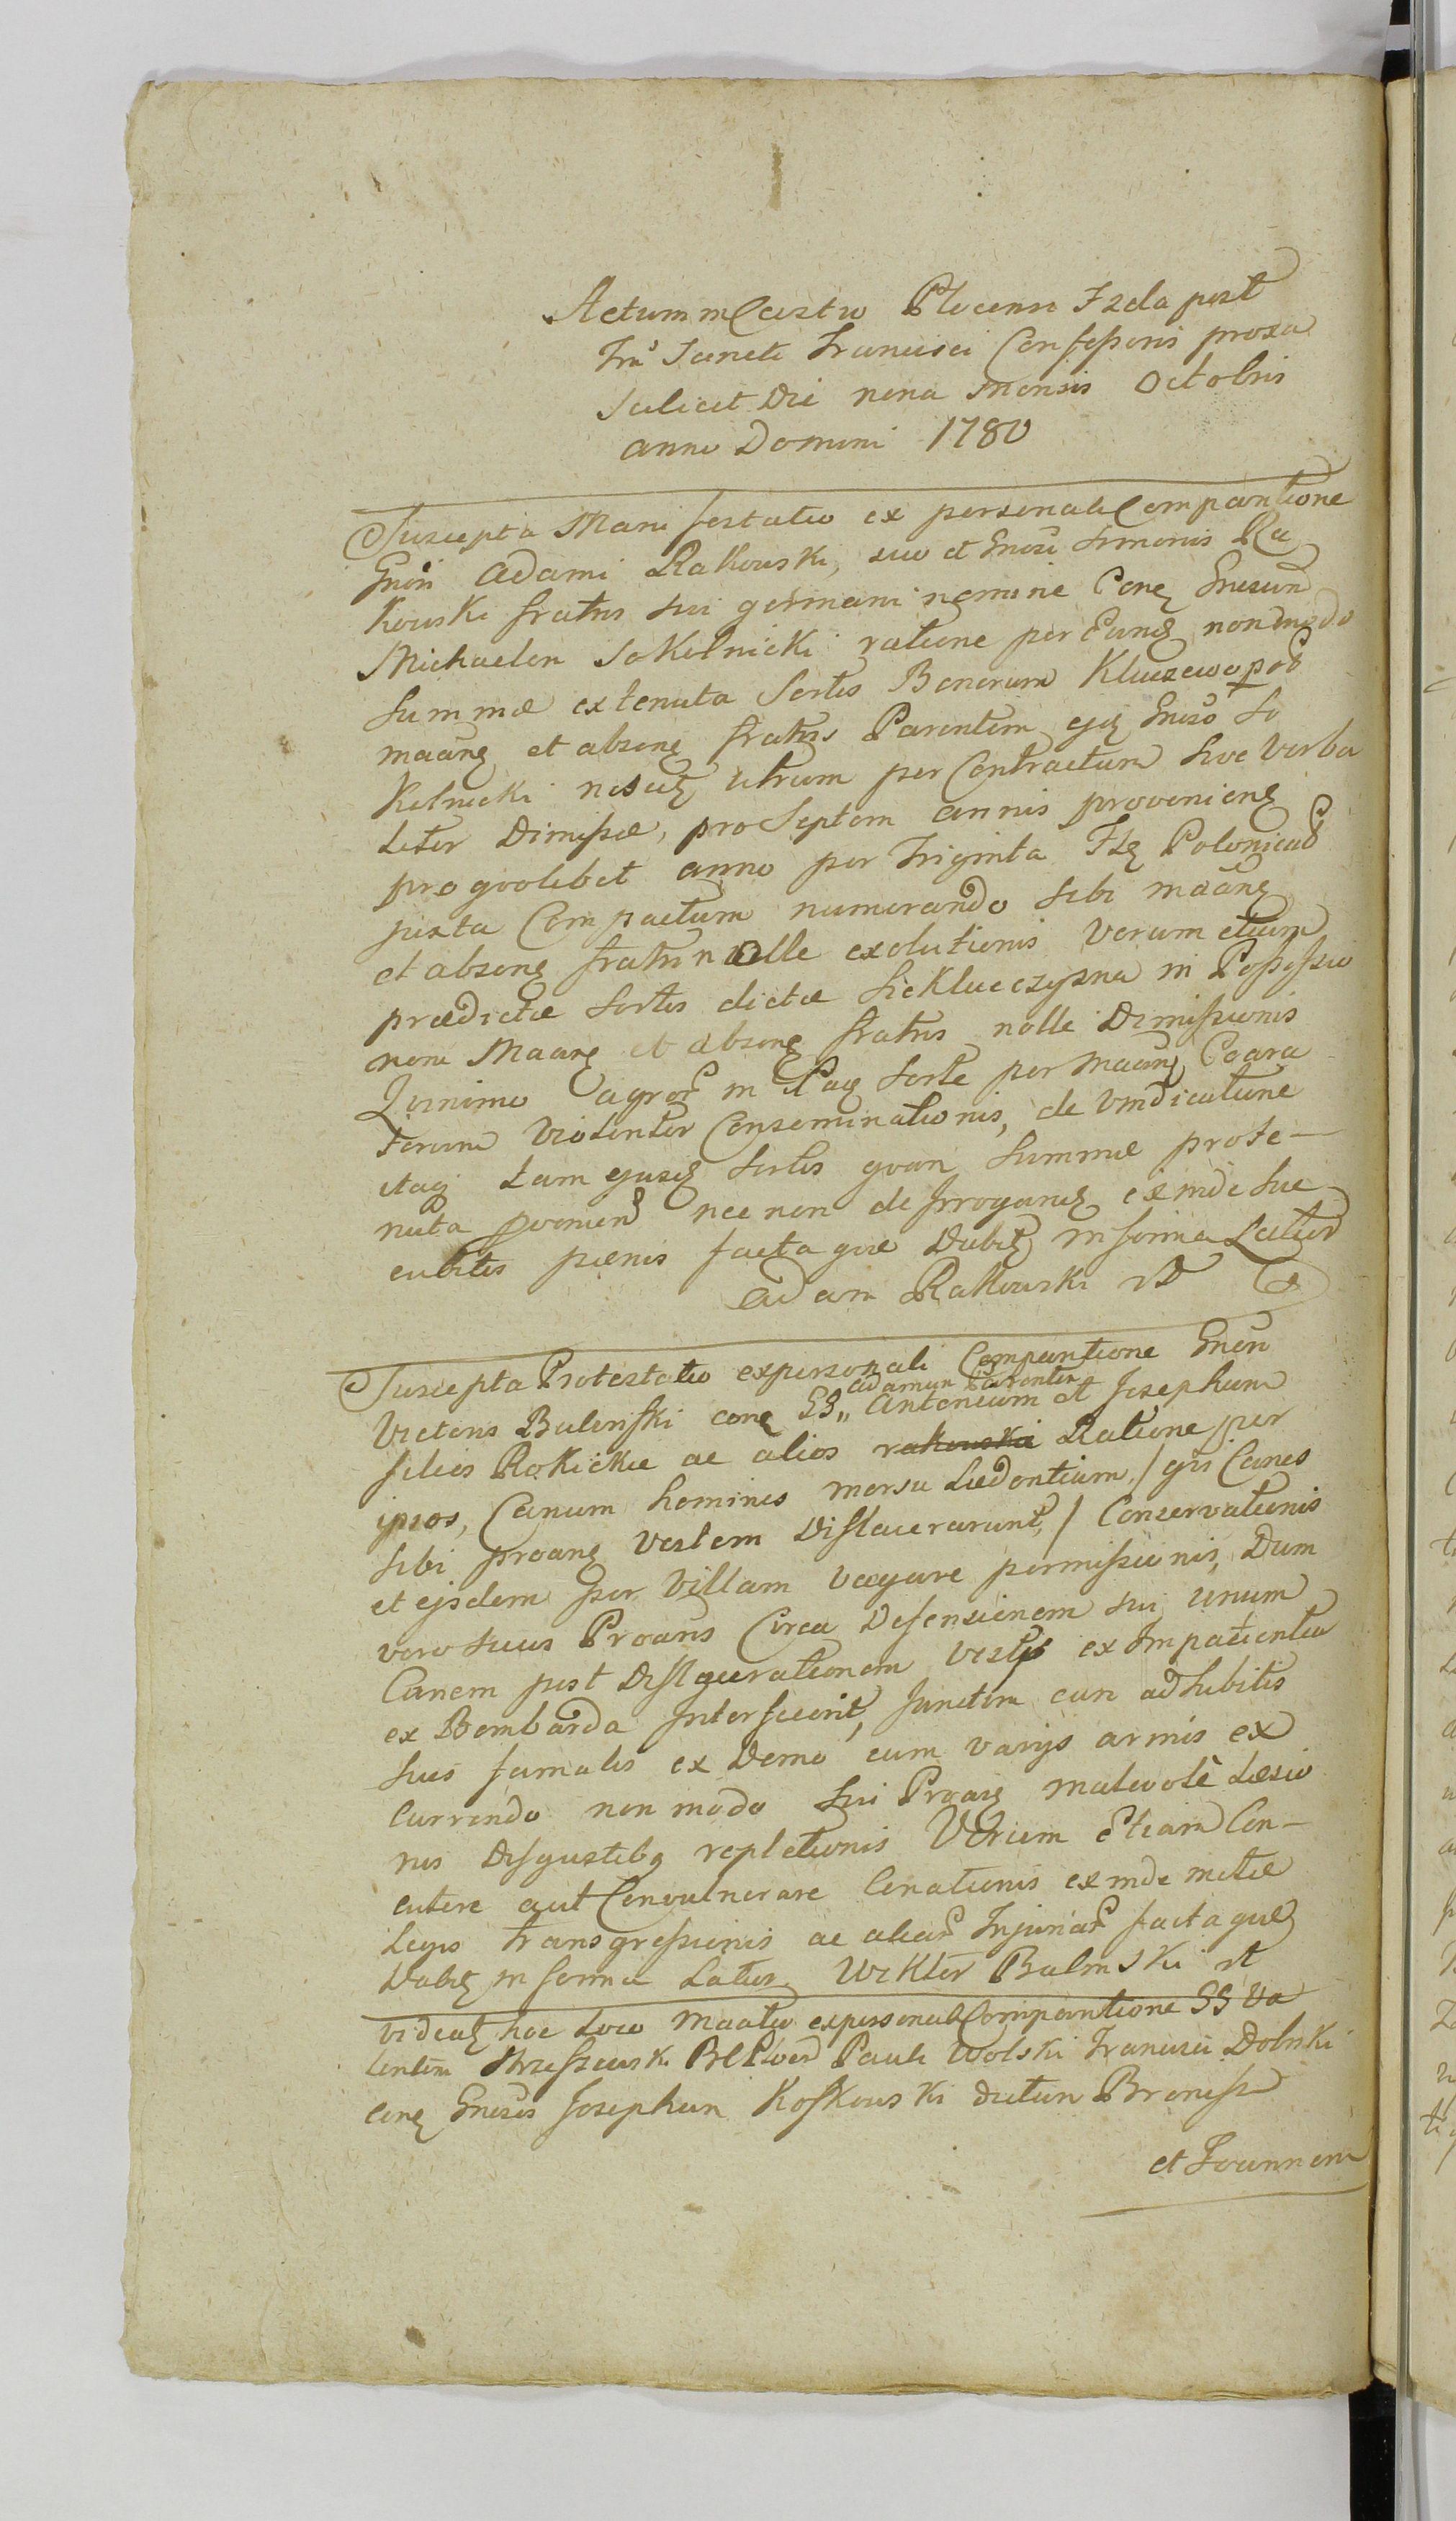 Actum in Castro Plocensi Fzda post
Fru Sancti Francisci Confessoris proxa
Scilicet Die nona Mensis Octobris
anno Domini 1780
Suscepta Manifestatio ex personali Comparitione
Gnosi Adami Rakowski, suo et Gnosi Simonis Ra
kowski fratris sui germani nomine Conq Gnosum
Michaelem Sokolnicki ratione per Eund non modo
Summæ ex tenuta Sortis Bonorum Kluczewo p
maang et absenq fratris Parentem ejq Gnoso So
kolnicki nescitq utrum per Contractum sive Verba
liter Dimissæ, pro Septem annis provenienq
pro qvolibet anno per Triginta Flq Polonical
juxta Compactum numerando sibi maanq
et absenq fratri nolle exolutionis Verum etiam
prædictæ Sortis dictæ Sieklucczyzna in Possessio
nem Maanq et absenq fratris nolle Dimissionis
Qvinimo agror in Eaq Sorte per Maanq Paara
torum Violenter Conseminationis, de Vindicatione
itaq tam ejusq Sortis qvam Summæ prote-
nuta provenien nec non de Irroganq exinde suc
cubitis pænis facta qve Dabitq in forma Latior
Adam Rakowski
Suscepta Protestatio ex personali Comparitione Gnosi
Victoris Bulinski conq GG,, Adamum Parentem Antonium et Josephum
filios Rokickie ac alios rakowski Ratione per
ipsos, Canum homines morsu Lædentium, / qvi Canes
sibi proanq Vestem Dislacerarunt, / Conservationis
et ejsdem per Villam Vagare permissionis, Dum
vero suus Proans Circa Defensionem sui unum
Canem post Dislacerationem Vestis ex Impatientia
ex Bombarda Interfecerit, Junctim cum adhibitis
suis famulis ex Domo cum varijs armis ex
currendo non modo sui Proanq malevole Læsio
nis Disgustibq repletionis Verum etiam Con-
cutere aut Convulnerare Conationis exinde mitæ
Legis transgressionis ac aliar Injuriar facta qvæ
Dabitq in forma Latior. Wiktor Balinski
videatq hoc Loco Maatio ex personali Comparitione GG Va
lentini Strzeszewski Pauli Wolski Francisci Dobski
conq Gnosos Josephum Koskowski dictum Bronisz
et Joannem